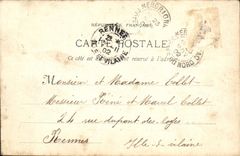 RÉPUBLIQUE FRANÇAISE
CARTE POSTALE
Ce côté est exclusivement réservé à l'adresse
RENNES
02
ILLE-ET-VILAINE
Monsieur et Madame Collet
Messieurs René et Marcel Collet
24 rue dupont des loges
Rennes
Ille & vilaine